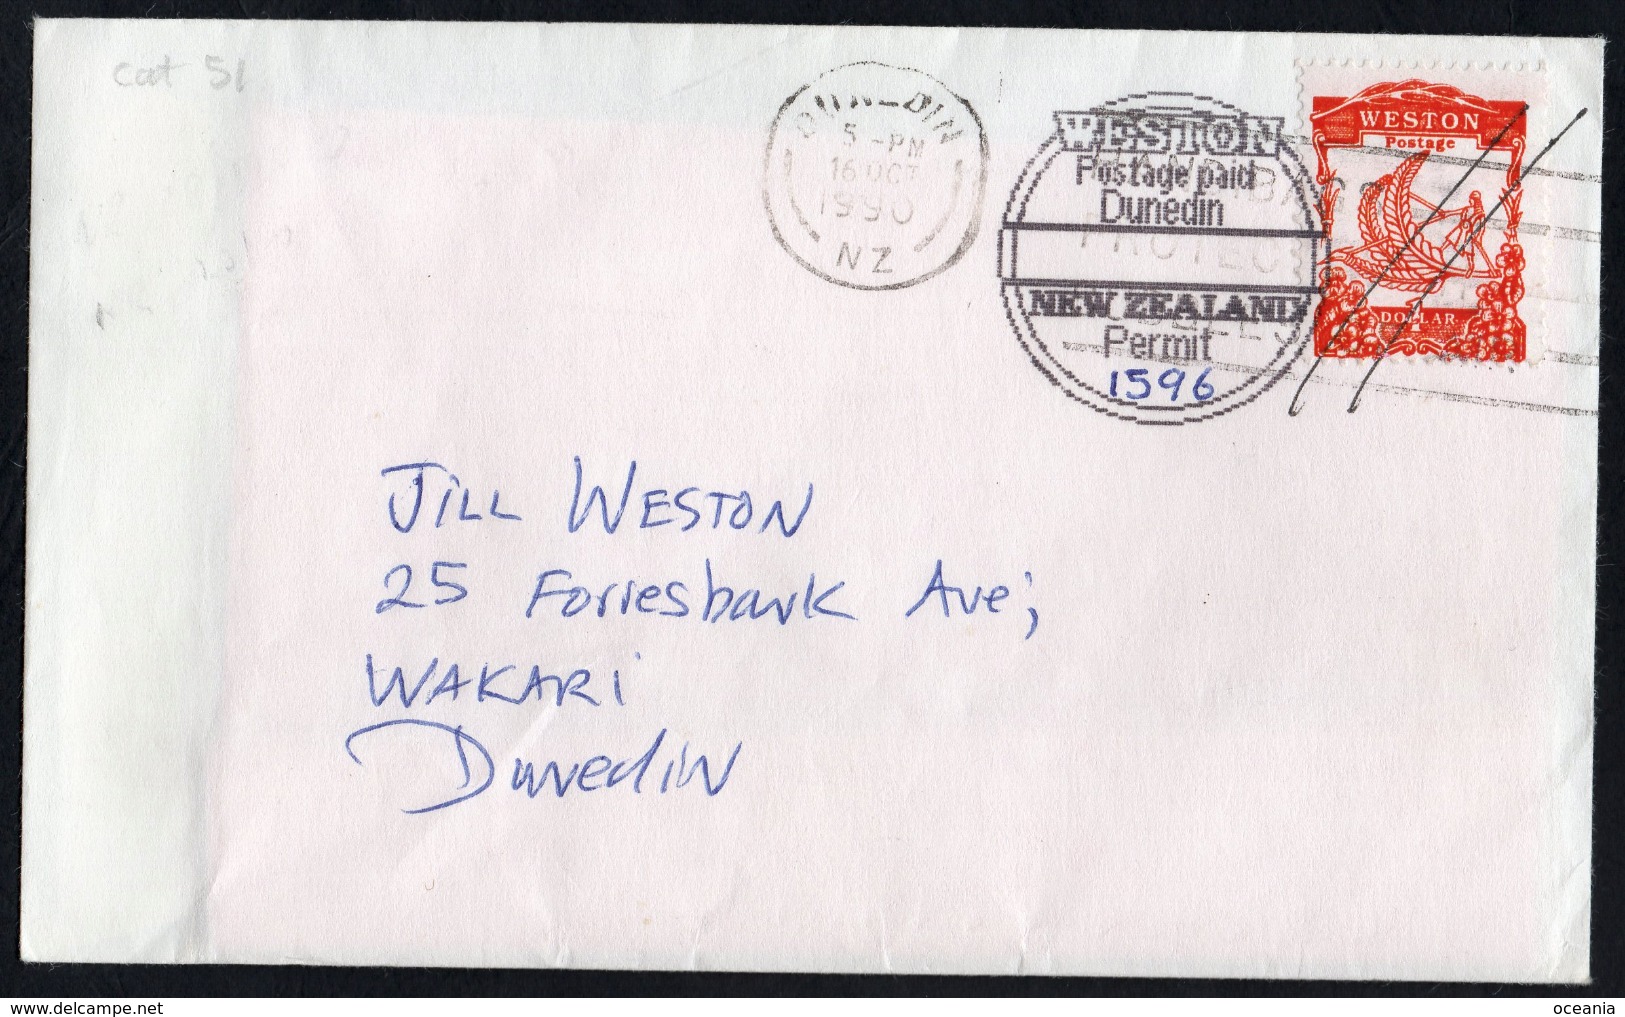 cat 51
5 -PM
16 OCT
1990
NZ
WESTON
Postage paid
Dunedin
NEW ZEALAND
Permit
1596
WESTON
Postage
1
DOLLAR
JILL WESTON
25 Forresbank Ave;
WAKARI
Dunedin
oceania